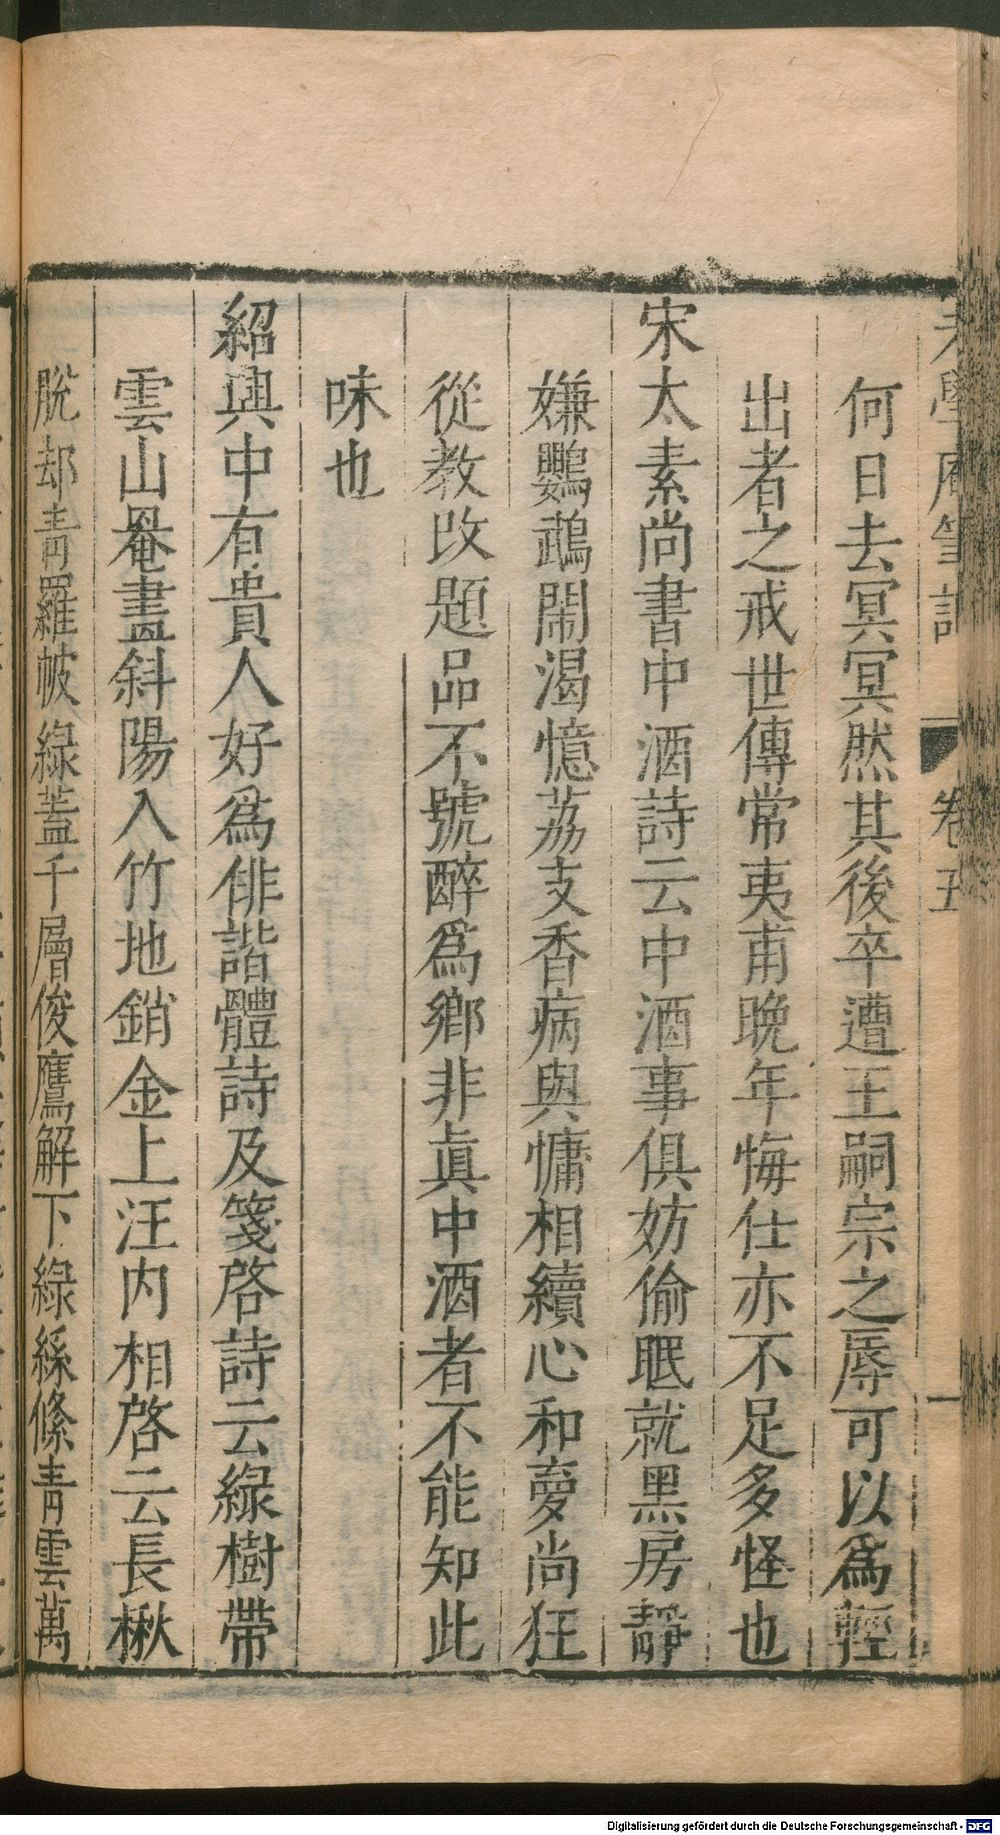 老學庵筆記 卷五 一
何日去冥冥然其後卒遭王嗣宗之辱可以爲輕
出者之戒世傳常夷甫晚年悔仕亦不足多怪也
宋太素尚書中酒詩云中酒事俱妨偷眠就黑房靜
嫌鸚鵡鬧渴憶荔支香病與慵相續心和夢尚狂
從教改題品不號醉爲鄉非眞中酒者不能知此
味也
紹興中有貴人好爲俳諧體詩及箋啓詩云綠樹帶
雲山罨畫斜陽入竹地銷金上汪内相啓云長楸
脫却青羅帔綠蓋千層俊鷹解下綠絲絛青雲萬
Digitalisierung gefördert durch die Deutsche Forschungsgemeinschaft - DFG